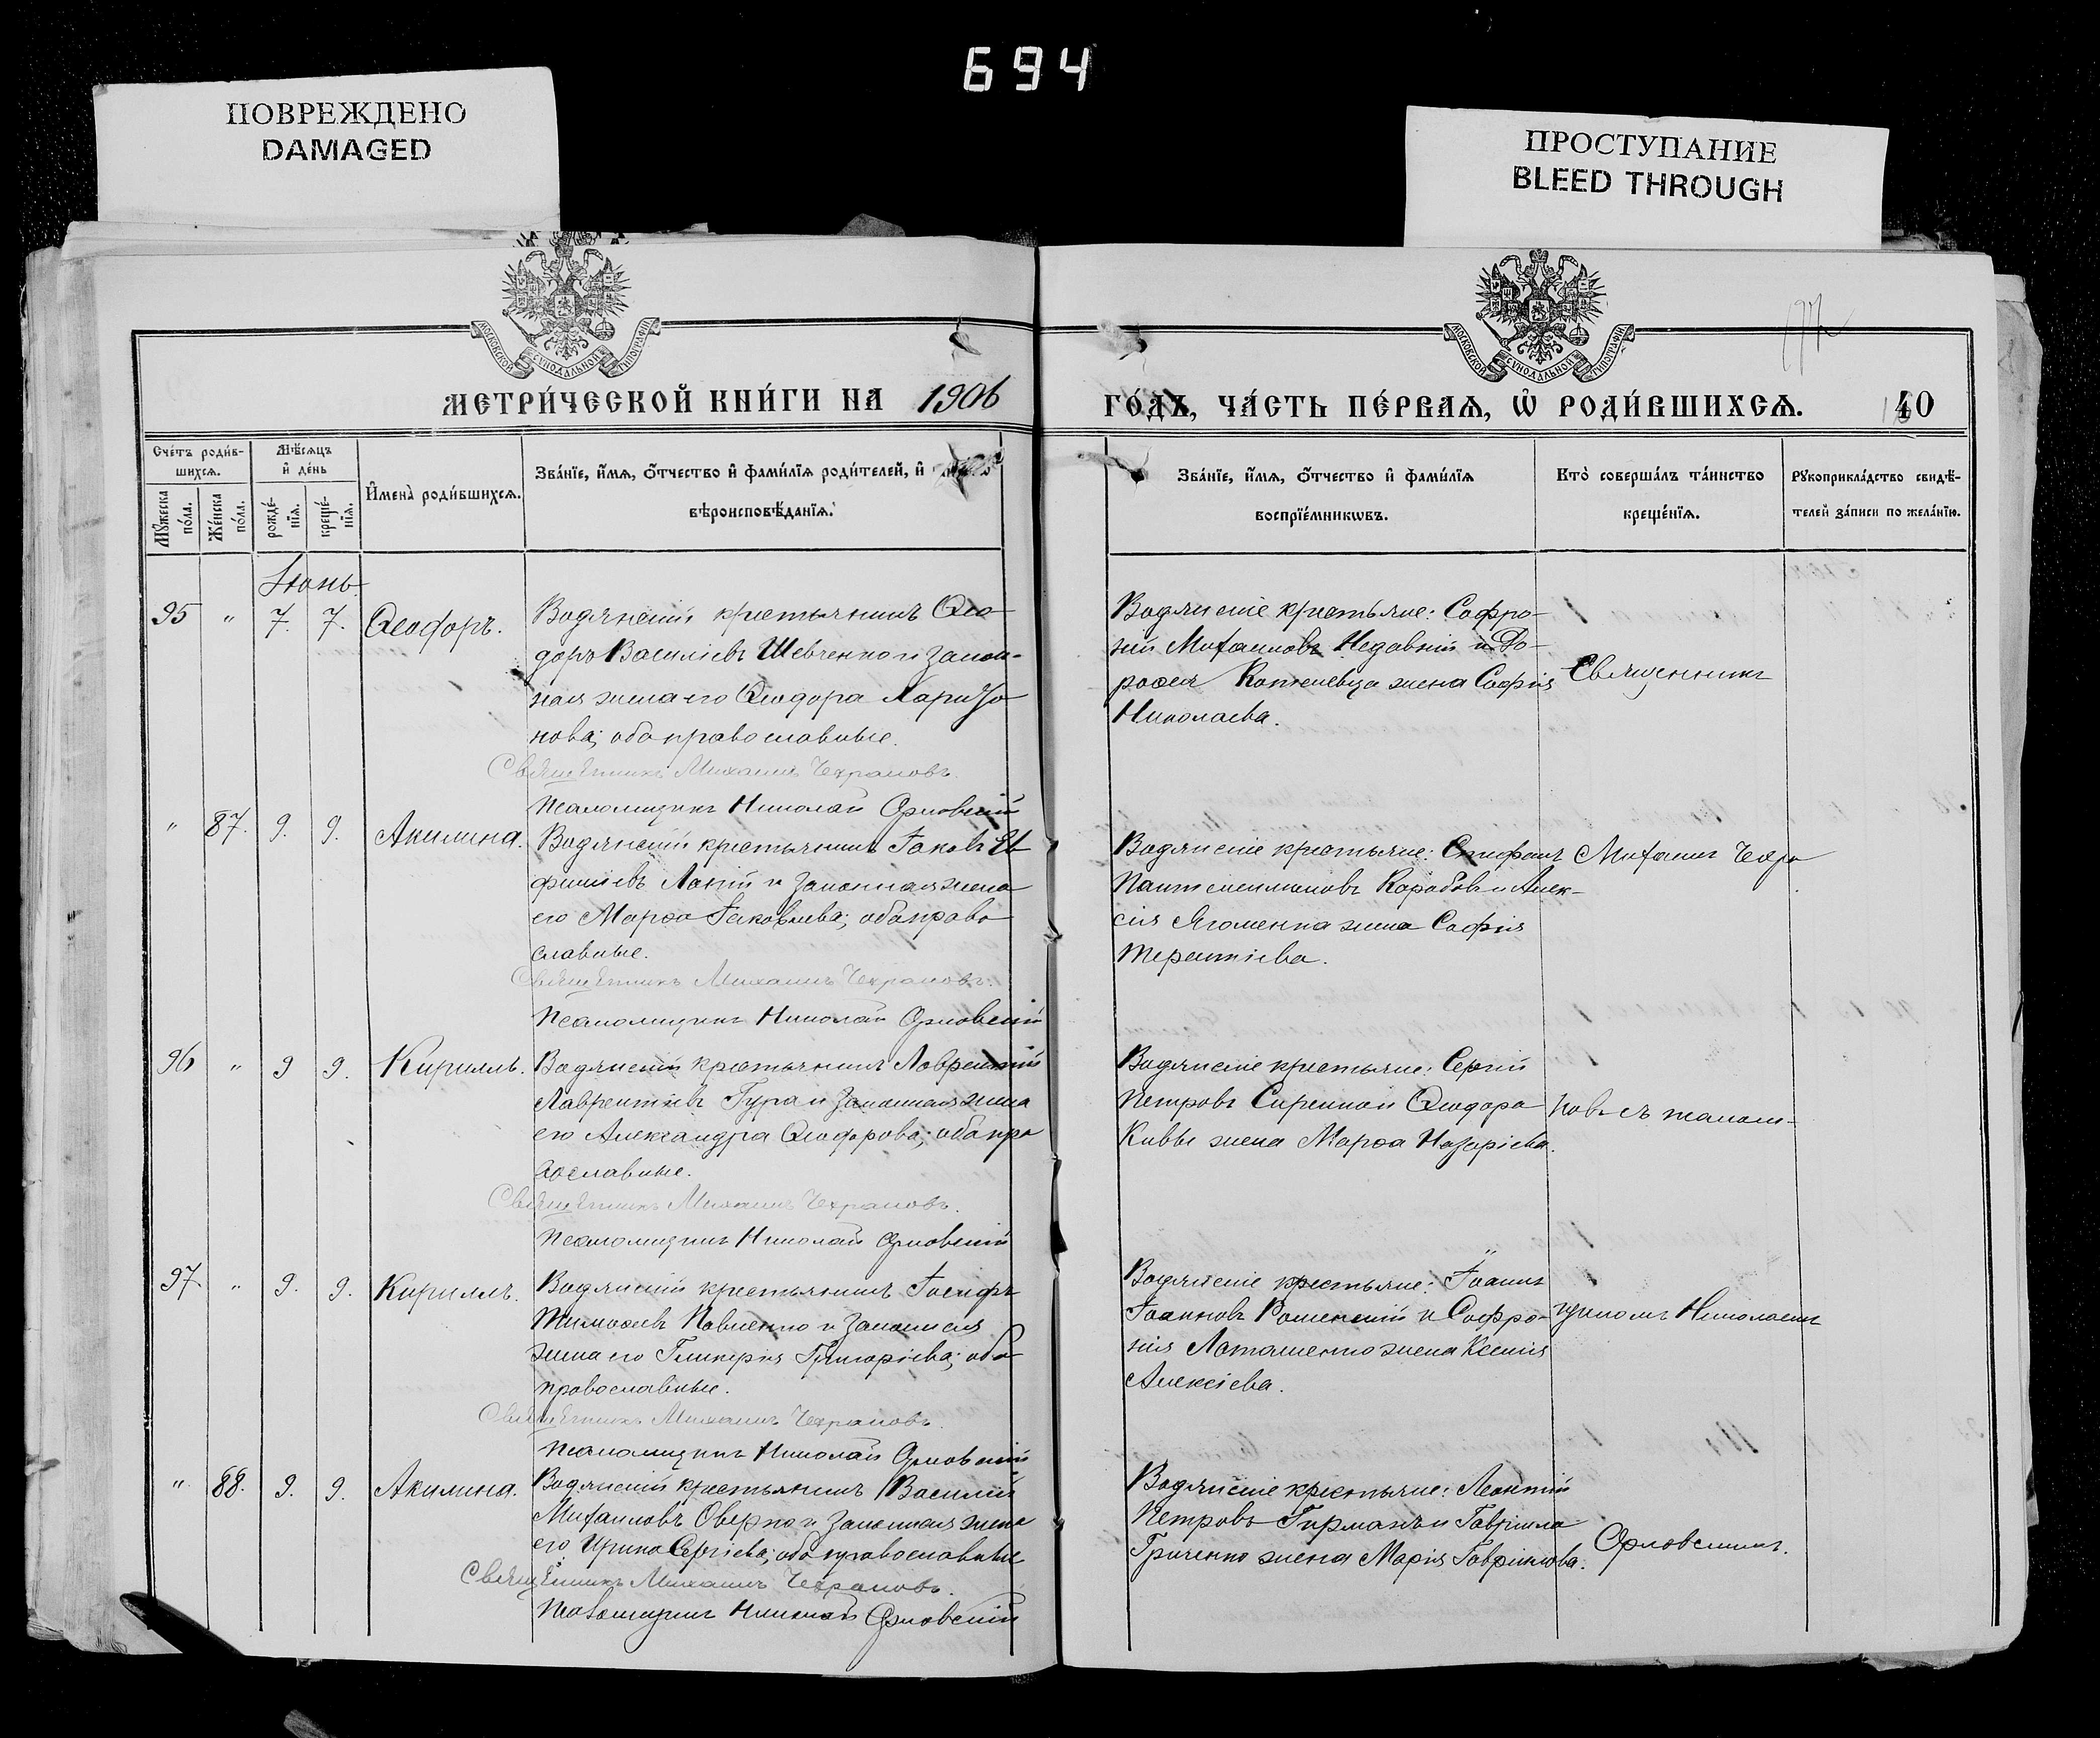 694
ПОВРЕЖДЕНО
DAMAGED
ПРОСТУПАНИЕ
BLEED THROUGH
МОСКОВСКОЙ СУНОДАЛЬНОЙ ТИПОГРАФІИ
МОСКОВСКОЙ СУНОДАЛЬНОЙ ТИПОГРАФІИ
МЕТРИ́ЧЕСКОЙ КНИ́ГИ НА 1906
ГО́ДЪ, ЧА́СТЬ ПЕ́РВАѦ, Ѡ РОДИ́ВШИХСѦ. 40
Сче́тъ роди́в-
шихсѧ.
Мѣ́сѧцъ
и҆ де́нь
И҆мена̀ роди́вшихсѧ.
Зва́нїе, и҆́мѧ, ѻ҆́тчество и҆ фами́лїѧ роди́телей, и҆
вѣроисповѣ́данїѧ.
Мꙋ́жеска
по́ла.
Же́нска
по́ла.
рожде́-
нїѧ.
креще́-
нїѧ.
Зва́нїе, и҆́мѧ, ѻ҆́тчество и҆ фами́лїѧ
воспрїе́мникѡвъ.
Кто̀ соверша́лъ та́инство
креще́нїѧ.
Рꙋкоприкла́дство свидѣ́-
телей за́писи по жела́нїю.
Іюнь
95 " 7. 7. Ѳеодоръ.
Водянскій крестьянинъ Ѳео-
доръ Василіевъ Шевченко и закон-
ная жена его Ѳеодора Харито
нова; оба православные.
Священникъ Михаилъ Чехрановъ.
Псаломщикъ Николай Орловскій
Водянскіе крестьяне: Софро-
ній Михаиловъ Недавній и До-
роѳея жена Софія
Николаева.
Священникъ
" 87. 9. 9. Акилина.
Водянскій крестьянинъ Іаковъ Ев
фиміевъ Лахтій и законная жена
его Марѳа Іаковлева; оба право
славные.
Священникъ Михаилъ Чехрановъ.
Псаломщикъ Николай Орловскій
Водянскіе крестьяне: Стефанъ
Пантелеимоновъ Карабовъ и Алек-
сія Ягоменка жена Софія
Терентіева.
Михаилъ Чехра
96 " 9 9. Кириллъ.
Водянскій крестьянинъ Лаврентій
Лаврентіевъ Гура и законная жена
его Александра Ѳеодорова; оба пра
вославные.
Священникъ Михаилъ Чехрановъ.
Псаломщикъ Николай Орловскій
Водянскіе крестьяне: Сергій
Петровъ Ѳеодора
жена Марѳа Назаріева.
новъ съ псалом-
97. " 9. 9. Кириллъ.
Водянскій крестьянинъ Іосифъ
Тимоѳеевъ Павленко и законная
жена его Гликерія Григоріева; оба
православные.
Священникъ Михаилъ Чехрановъ.
Псаломщикъ Николай Орловскій
Водянскіе крестьяне: Іоаннъ
Іоанновъ Роменскій и Софро-
нія Латашенко жена Ксенія
Алексіева.
щикомъ Николаемъ
" 88. 9. 9. Акилина.
Водянскій крестьянинъ Василій
Михаиловъ Оверко и законная жена
его Ирина Сергіева; оба православные
Священникъ Михаилъ Чехрановъ.
Псаломщикъ Николай Орловскій
Водянскіе крестьяне: Леонтій
Петровъ Гирманъ и Гавріила
Гриченко жена Марія Гавріилова.
Орловскимъ.